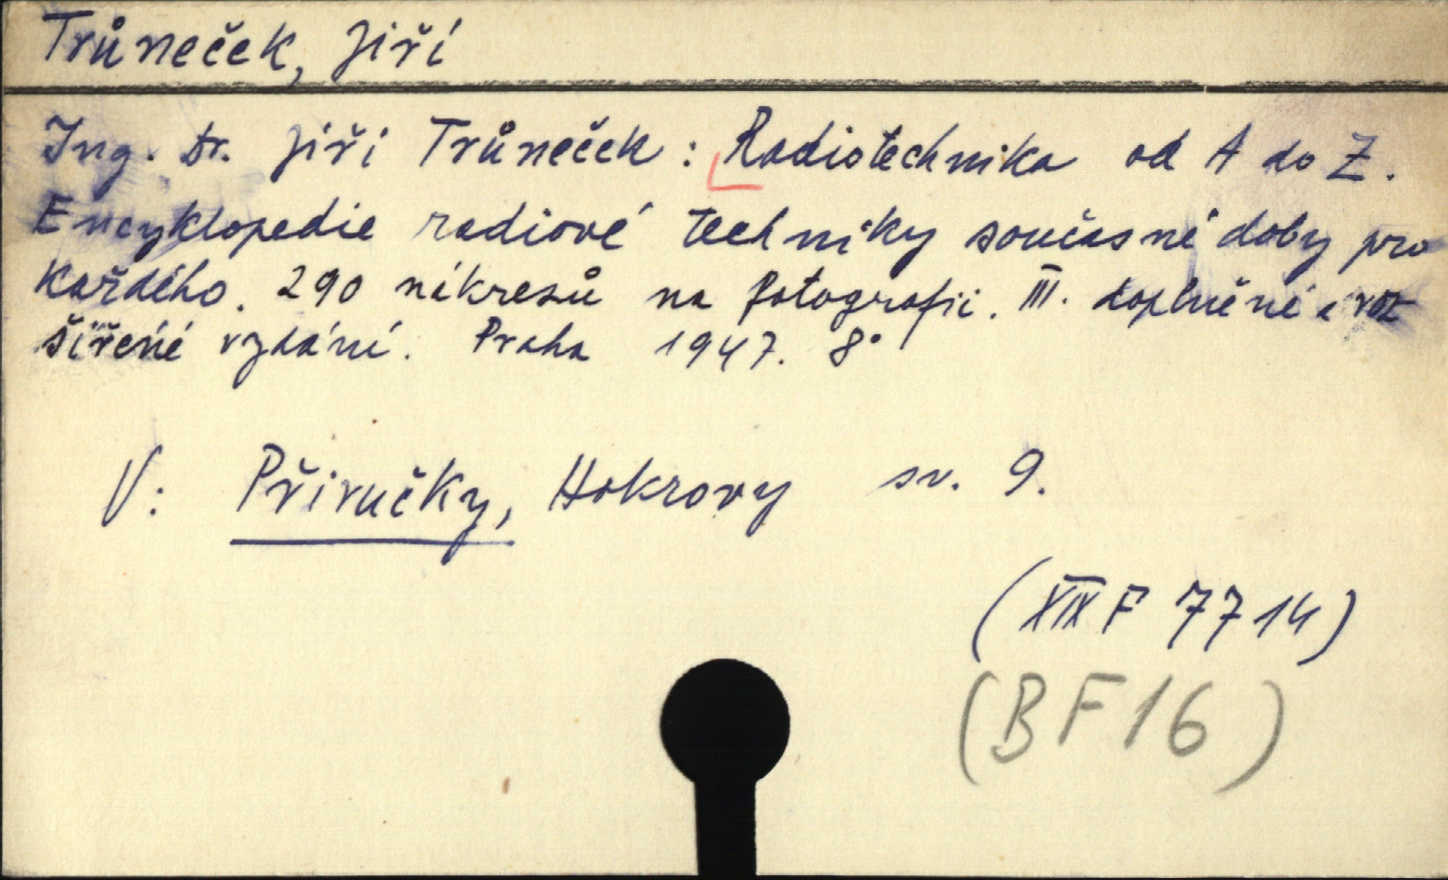 Trůneček, Jiří
Ing. dr. Jiří Trůneček: Radiotechnika od A do Z.
Encyklopedie radiové techniky současné doby pro
každého. 290 nákresů na fotografii. III. doplněné a roz
šířené vydání. Praha 1947. 8°
V: Příručky, Hokrovy sv. 9.
(XIX F 7714)
(BF16)